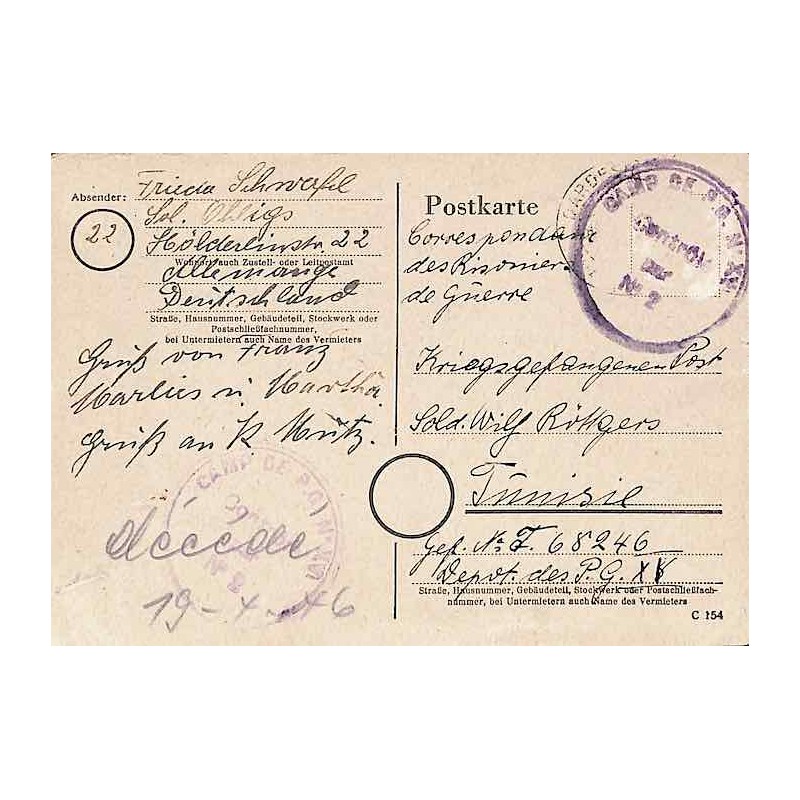 Absender: Frieda Schwafel
Sol. Ohligs
22
Hölderleinstr. 22
Wohnort, auch Zustell- oder Leitpostamt
Allemange
Deutschland
Straße, Hausnummer, Gebäudeteil, Stockwerk oder
Postschließfachnummer,
bei Untermietern auch Name des Vermieters
Gruß von Franz
Marlies u. Martha.
Gruß an K. Mutz.
CAMP DE P.G. N°
décédé
19-4-46
Postkarte
CAMP DE P.G. N° XV
N° 2
Correspondance
des Prisoniers
de Guerre
Kriegsgefangenen Post
Sold. Wilf Röttgers
Tunisie
Gef. No. T. 68246
Depot. des P.G. XV
Straße, Hausnummer, Gebäudeteil, Stockwerk oder Postschließfach-
nummer, bei Untermietern auch Name des Vermieters
C 154